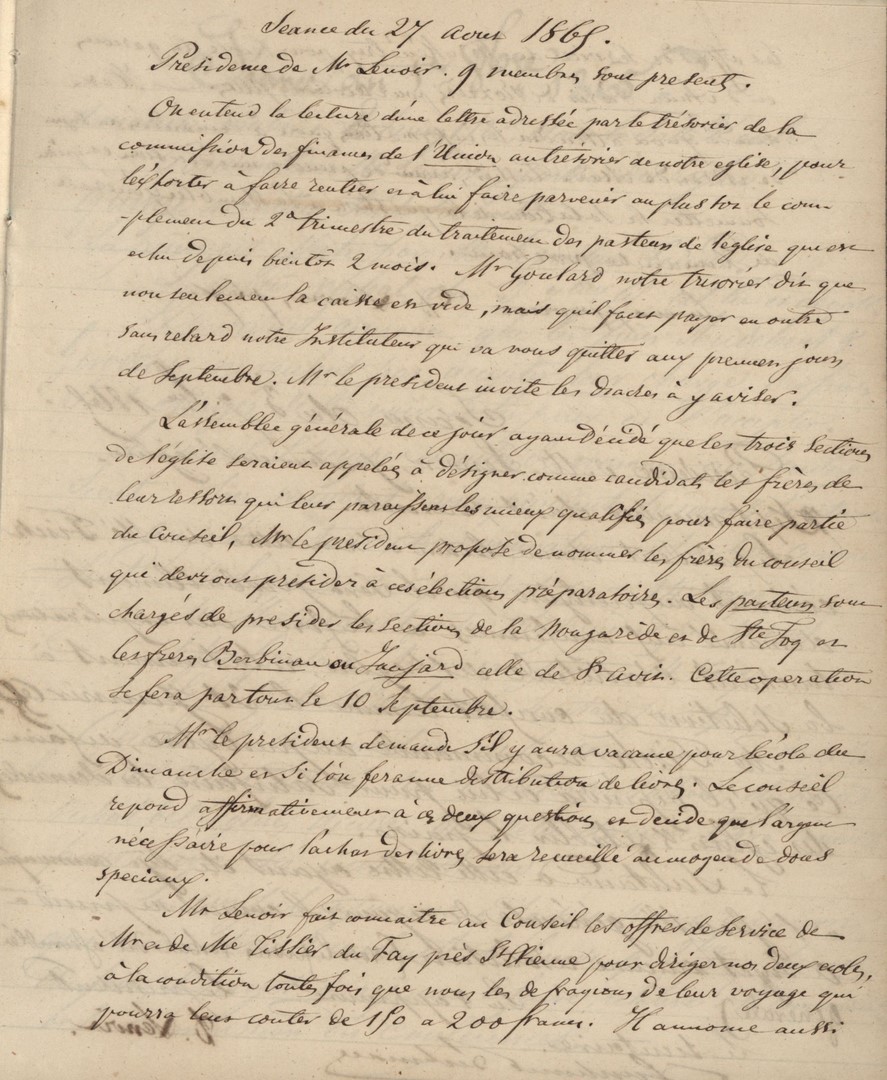 Seance du 27 Aout 1865.
Présidence de Mr Lenoir. 9 membres sont present.
On entend la lecture d'une lettre adressée par le trésorier de la
commission des finances de l'Union au trésorier de notre eglise, pour
l'exhorter à faire rentrer et à lui faire parvenir au plus tot le com-
-plement du 2e trimestre du traitement des pasteurs de l'église qui est
echu depuis bientôt 2 mois. Mr Goulard notre trésorier dit que
non seulement la caisse est vide, mais qu'il faut payer en outre
sans retard notre Instituteur qui va vous quitter aux premiers jours
de Septembre. Mr le president invite les diacres à y aviser.
L'assemblée générale de ce jour ayant décidé que les trois sections
de l'église seraient appelées à désigner comme candidats les frères de
leur ressort qui leur paraissent les mieux qualifiés pour faire partie
du Conseil, Mr le president propose de nommer les frères du conseil
qui devront presider à ces élections préparatoires. Les pasteurs sont
chargés de presider les sections de la Nougarède et de Ste Foy et
les frères Berbineau ou Jaujard celle de St Avit. Cette operation
se fera partout le 10 Septembre.
Mr le president demande s'il y aura vacance pour l'école du
Dimanche et si l'on fera une distribution de livres. Le conseil
repond affirmativement à ces deux questions et decide que l'argent
nécessaire pour l'achat des livres sera recueilli au moyen de dons
speciaux.
Mr Lenoir fait connaitre au Conseil les offres de service de
Mr et de Me Tissier du Fay près St Etienne pour diriger nos deux ecoles,
à la condition toutes fois que nous les defrayions de leur voyage qui
pourra leur couter de 150 a 200 francs. Il annonce aussi